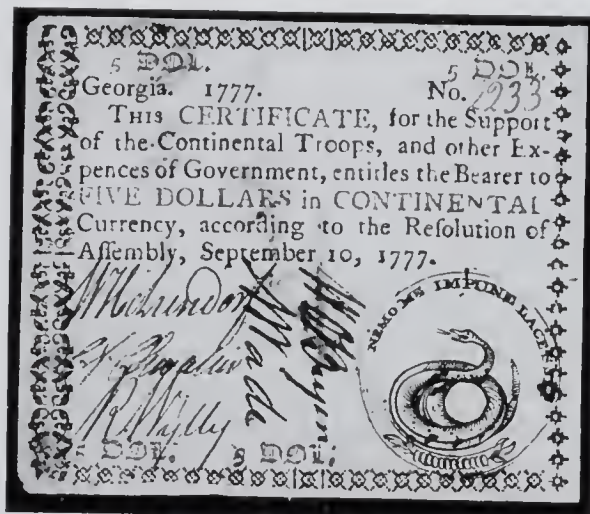 5 DOL. 5 DOL.
Georgia. 1777. No. 1233
THIS CERTIFICATE, for the Support
of the Continental Troops, and other Ex-
pences of Government, entitles the Bearer to
FIVE DOLLARS in CONTINENTAL
Currency, according to the Reſolution of
Aſſembly, September 10, 1777.
NEMO ME IMPUNE LACE
R Wylly
5 DOL. 5 DOL.